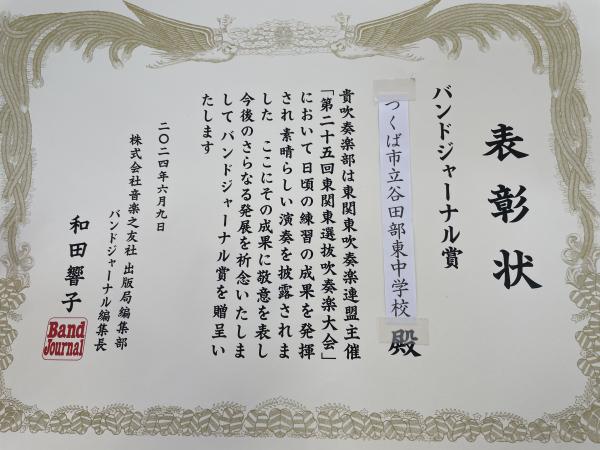 表彰状
バンドジャーナル賞
つくば市立谷田部東中学校 殿
貴吹奏楽部は東関東吹奏楽連盟主催
「第二十五回東関東選抜吹奏楽大会」
において日頃の練習の成果を発揮
され 素晴らしい演奏を披露されま
した ここにその成果に敬意を表し
今後のさらなる発展を祈念いたしま
して バンドジャーナル賞を贈呈い
たします
二〇二四年六月九日
株式会社音楽之友社 出版局編集部
バンドジャーナル編集長
和田響子
Band
Journal